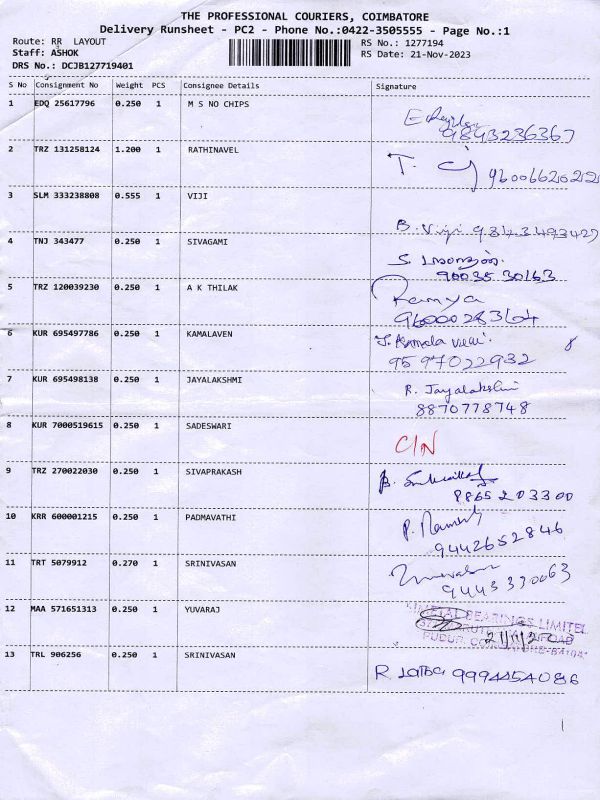 THE PROFESSIONAL COURIERS, COIMBATORE
Delivery Runsheet - PC2 - Phone No.:0422-3505555 - Page No.:1
Route: RR LAYOUT
RS No.: 1277194
Staff: ASHOK
RS Date: 21-Nov-2023
DRS No.: DCJB127719401
S No Consignment No Weight PCS Consignee Details Signature
1 EDQ 25617796 0.250 1 M S NO CHIPS
9843236367
2 TRZ 131258124 1.200 1 RATHINAVEL
T.
3 SLM 333238808 0.555 1 VIJI
B. Viji 9843493427
4 TNJ 343477 0.250 1 SIVAGAMI
S.
90035 30163
5 TRZ 120039230 0.250 1 A K THILAK
Ramya
96000283604
6 KUR 695497786 0.250 1 KAMALAVEN
8
95 97022932
7 KUR 695498138 0.250 1 JAYALAKSHMI
R. Jayalakshmi
8870778748
8 KUR 7000519615 0.250 1 SADESWARI
C/N
9 TRZ 270022030 0.250 1 SIVAPRAKASH
B.
8865203300
10 KRR 600001215 0.250 1 PADMAVATHI
P. Ramesh
9442652846
11 TRT 5079912 0.270 1 SRINIVASAN
9443330063
12 MAA 571651313 0.250 1 YUVARAJ
METAL BEARINGS LIMITED
PUDUR,
13 TRL 906256 0.250 1 SRINIVASAN
R. 9994454086
1